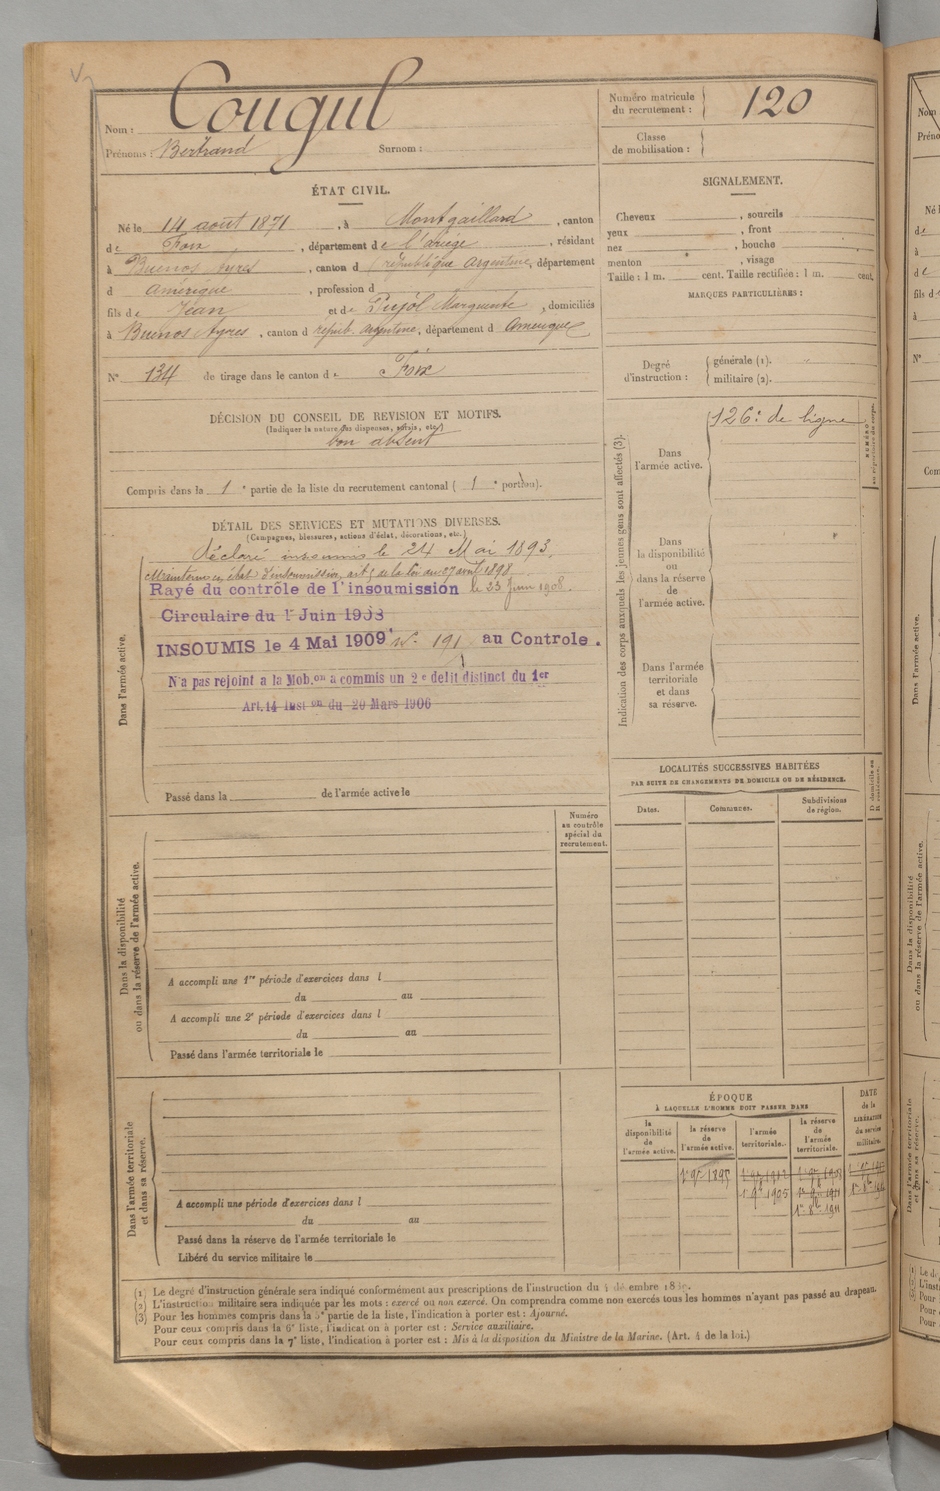 Nom : Cougul
Prénoms : Bertrand Surnom :
Numéro matricule du recrutement : 120
Classe de mobilisation :
ÉTAT CIVIL.
Né le 14 août 1871, à Montgaillard, canton
de Foix, département de l'ariège, résidant
à Buenos Ayres, canton d république argentine, département
d amérique, profession d
fils de Jean et de Pujol Marguerite, domiciliés
à Buenos Ayres, canton d repub. argentine, département d amerique
N° 134 de tirage dans le canton de Foix
DÉCISION DU CONSEIL DE REVISION ET MOTIFS.
(Indiquer la nature des dispenses, sursis, etc.)
bon absent
Compris dans la 1e partie de la liste du recrutement cantonal (1e portion).
DÉTAIL DES SERVICES ET MUTATIONS DIVERSES.
(Campagnes, blessures, actions d'éclat, décorations, etc.)
Dans l'armée active.
Déclaré insoumis le 24 Mai 1893.
Maintenu en état d'insoumission, art 5 de la loi du 27 avril 1898
Rayé du contrôle de l'insoumission le 23 Juin 1908.
Circulaire du 1r Juin 1908
INSOUMIS le 4 Mai 1909 N° 191 au Controle.
N'a pas rejoint a la Mob.on a commis un 2e delit distinct du 1er
Art. 14 Inst on du 20 Mars 1906
Passé dans la de l'armée active le
Numéro au contrôle spécial du recrutement.
Dans la disponibilité ou dans la réserve de l'armée active.
A accompli une 1re période d'exercices dans l
du au
A accompli une 2e période d'exercices dans l
du au
Passé dans l'armée territoriale le
Dans l'armée territoriale et dans sa réserve.
A accompli une période d'exercices dans l
du au
Passé dans la réserve de l'armée territoriale le
Libéré du service militaire le
SIGNALEMENT.
Cheveux , sourcils
yeux , front
nez , bouche
menton , visage
Taille : 1 m. cent. Taille rectifiée : 1 m. cent.
MARQUES PARTICULIÈRES :
Degré d'instruction :
générale (1).
militaire (2).
Indication des corps auxquels les jeunes gens sont affectés (3).
Dans l'armée active.
126e de ligne
Dans la disponibilité ou dans la réserve de l'armée active.
Dans l'armée territoriale et dans sa réserve.
LOCALITÉS SUCCESSIVES HABITÉES
PAR SUITE DE CHANGEMENTS DE DOMICILE OU DE RÉSIDENCE.
Dates. Communes. Subdivisions de région.
ÉPOQUE
À LAQUELLE L'HOMME DOIT PASSER DANS
la disponibilité de l'armée active. la réserve de l'armée active. l'armée territoriale. la réserve de l'armée territoriale.
DATE de la LIBÉRATION du service militaire.
1r 9bre 1895
(1) Le degré d'instruction générale sera indiqué conformément aux prescriptions de l'instruction du
(2) L'instruction militaire sera indiquée par les mots : exercé ou non exercé. On comprendra comme non exercés tous les hommes n'ayant pas passé au drapeau.
(3) Pour les hommes compris dans la 5e partie de la liste, l'indication à porter est : Ajourné.
Pour ceux compris dans la 6e liste, l'indication à porter est : Service auxiliaire.
Pour ceux compris dans la 7e liste, l'indication à porter est : Mis à la disposition du Ministre de la Marine. (Art. 4 de la loi.)